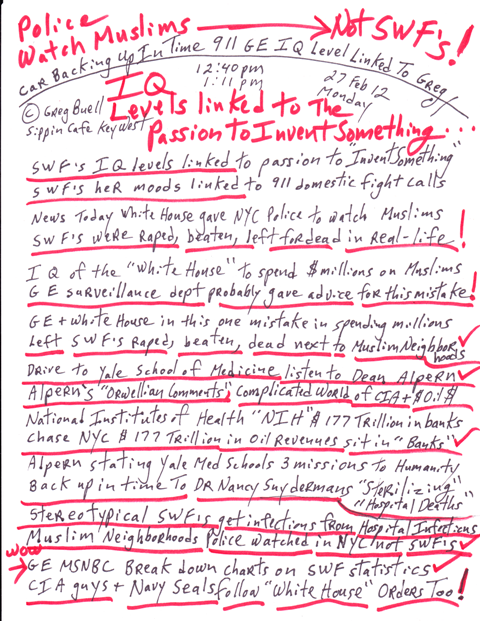 Police
Watch Muslims → Not SWF's!
Car Backing up In Time 911 GE IQ Level Linked To Greg
12:40pm
1:11pm
27 Feb 12
Monday
© Greg Buell
Sippin Cafe Key West
IQ
Levels linked to The
Passion to Invent Something...
SWF's IQ levels linked to passion to "Invent Something"
SWF's her moods linked to 911 domestic fight calls
News Today White House gave NYC Police to watch Muslims
SWF's were Raped, beaten, left for dead in real-life!
IQ of the "White House" to spend $millions on Muslims
GE surveillance dept probably gave advice for this mistake!
GE + White House in this one mistake in spending millions
left SWF's Raped, beaten, dead next to Muslim Neighborhoods
Drive to Yale School of Medicine listen to Dean Alpern
Alpern's "Orwellian Comments" Complicated World of CIA + $Oil $
National Institutes of Health "NIH" $177 Trillion in banks
chase NYC $177 Trillion in Oil Revenues sit in "Banks"
Alpern stating Yale Med Schools 3 missions to Humanity
Back up in time To DR Nancy Snydermans "Sterilizing"
"Hospital Deaths"
Stereotypical SWF's get infections from Hospital Infections
Muslim Neighborhoods Police watched in NYC not SWF's
WOW
→ GE MSNBC Break down charts on SWF statistics
CIA guys + Navy Seals follow "White House" Orders Too!